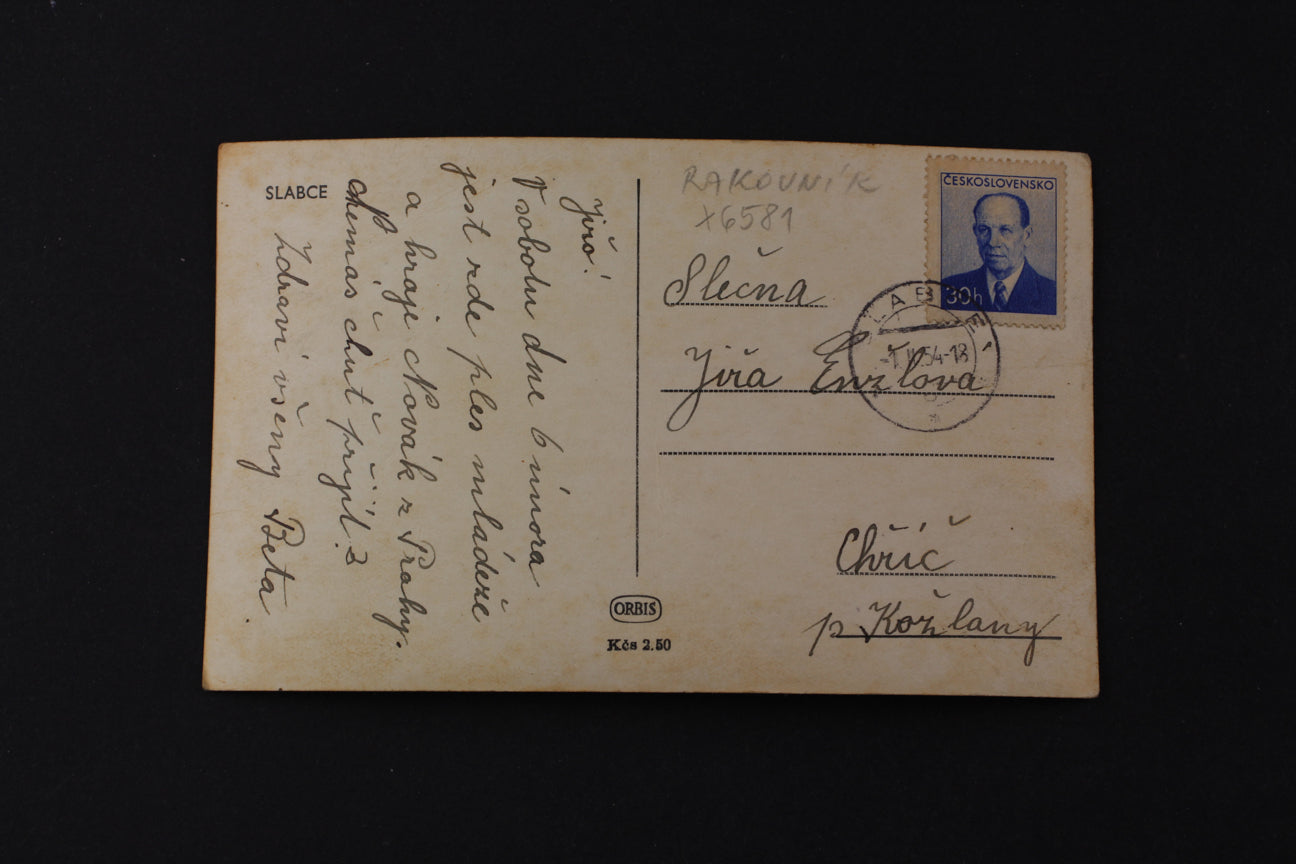 SLABCE
Jiřo!
V sobotu dne 6 února
jest zde ples mládeže
a hraje Novák z Prahy.
Nemáš chuť přijít?
Zdraví všeny Beta.
ORBIS
Kčs 2.50
RAKOVNÍK
X6581
ČESKOSLOVENSKO
30h
-1.II.54-18
Slečna
Jiřa Enzlova
Chříč
p Kožlany